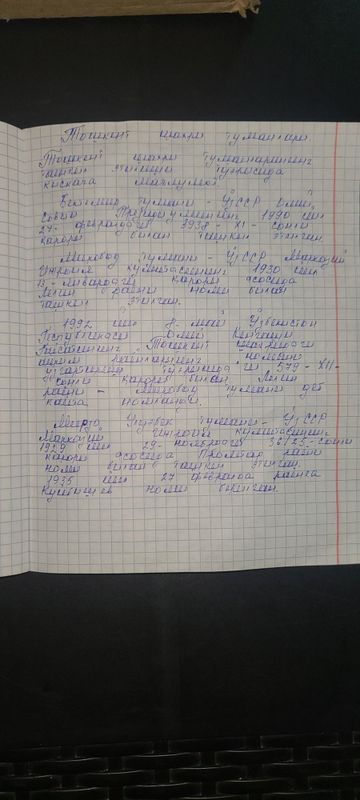 Тошкент шахри туманлари.
Тошкент шахри туманларининг
ташкил этилиши тугрисида
кискача маълумот.
Бектемир тумани - ЎзССР Олий
Совет Президиумининг 1990 йил
27 - февралдаги 3938 - XI - сонли
карори билан ташкил этилган.
Миробод тумани - ЎзССР Марказий
Ижроия кумитасининг 1930 йил
13 - январдаги карори асосида
Ленин райони номи билан
ташкил этилган.
1992 йил 8 - май Ўзбекистон
Республикаси Олий Кенгаши
Раисининг Тошкент шахридаги
айрим районларининг номини
узгартириш тугрисида ги 579 - XII -
сонли карори билан Ленин
райони - Миробод тумани деб
кайта номланди.
Мирзо Улугбек тумани - ЎзССР
Марказий Ижроия кумитасининг
1929 йил 29 - ноябрдаги 36/25 - сонли
карори асосида Пролетар райони
номи билан ташкил этилган.
1935 йил 27 февралда районга
Куйбишев номи берилган.